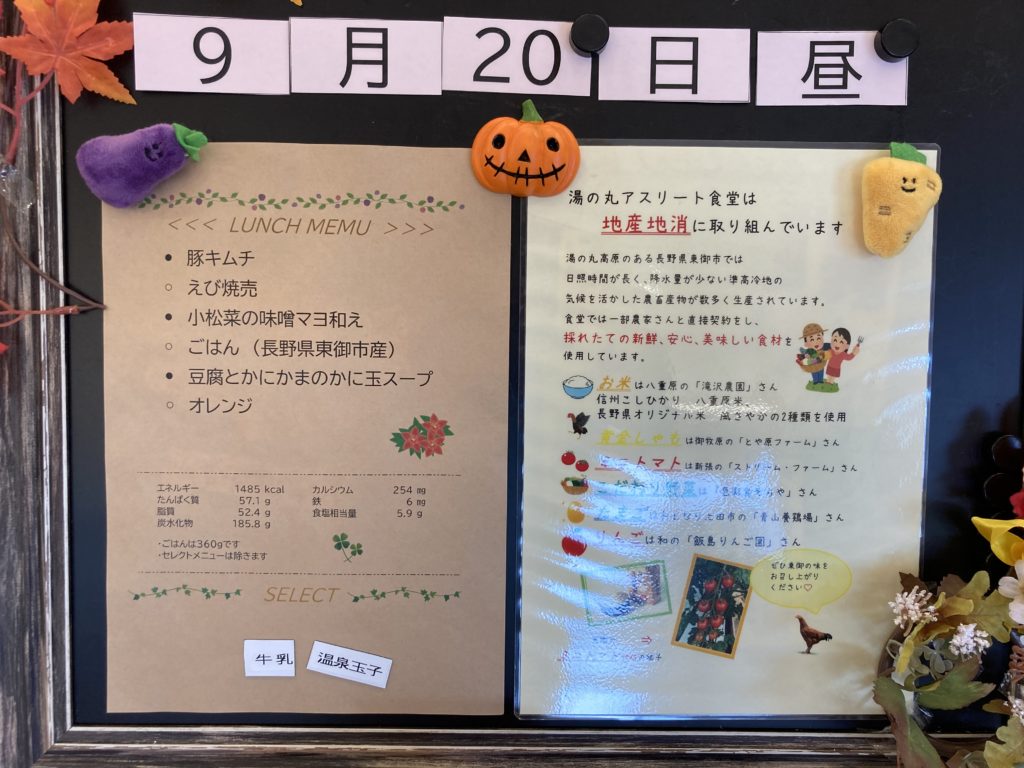 9月20日 昼
<<< LUNCH MEMU >>>
• 豚キムチ
○ えび焼売
• 小松菜の味噌マヨ和え
○ ごはん（長野県東御市産）
• 豆腐とかにかまのかに玉スープ
○ オレンジ
エネルギー 1485 kcal カルシウム 254 mg
たんぱく質 57.1 g 鉄 6 mg
脂質 52.4 g 食塩相当量 5.9 g
炭水化物 185.8 g
・ごはんは360gです
・セレクトメニューは除きます
SELECT
牛乳 温泉玉子
湯の丸アスリート食堂は
地産地消に取り組んでいます
湯の丸高原のある長野県東御市では
日照時間が長く、降水量が少ない準高冷地の
気候を活かした農畜産物が数多く生産されています。
食堂では一部農家さんと直接契約をし、
採れたての新鮮、安心、美味しい食材を
使用しています。
お米は八重原の「滝沢農園」さん
信州こしひかり 八重原米
長野県オリジナル米 風さやかの2種類を使用
黄金しゃもは御牧原の「とや原ファーム」さん
ミニトマトは新張の「ストリーム・ファーム」さん
こだわり野菜は さん
たまごは 田市の「青山養鶏場」さん
りんごは和の「飯島りんご園」さん
ぜひ東御の味を
お召し上がり
ください♡
⇒